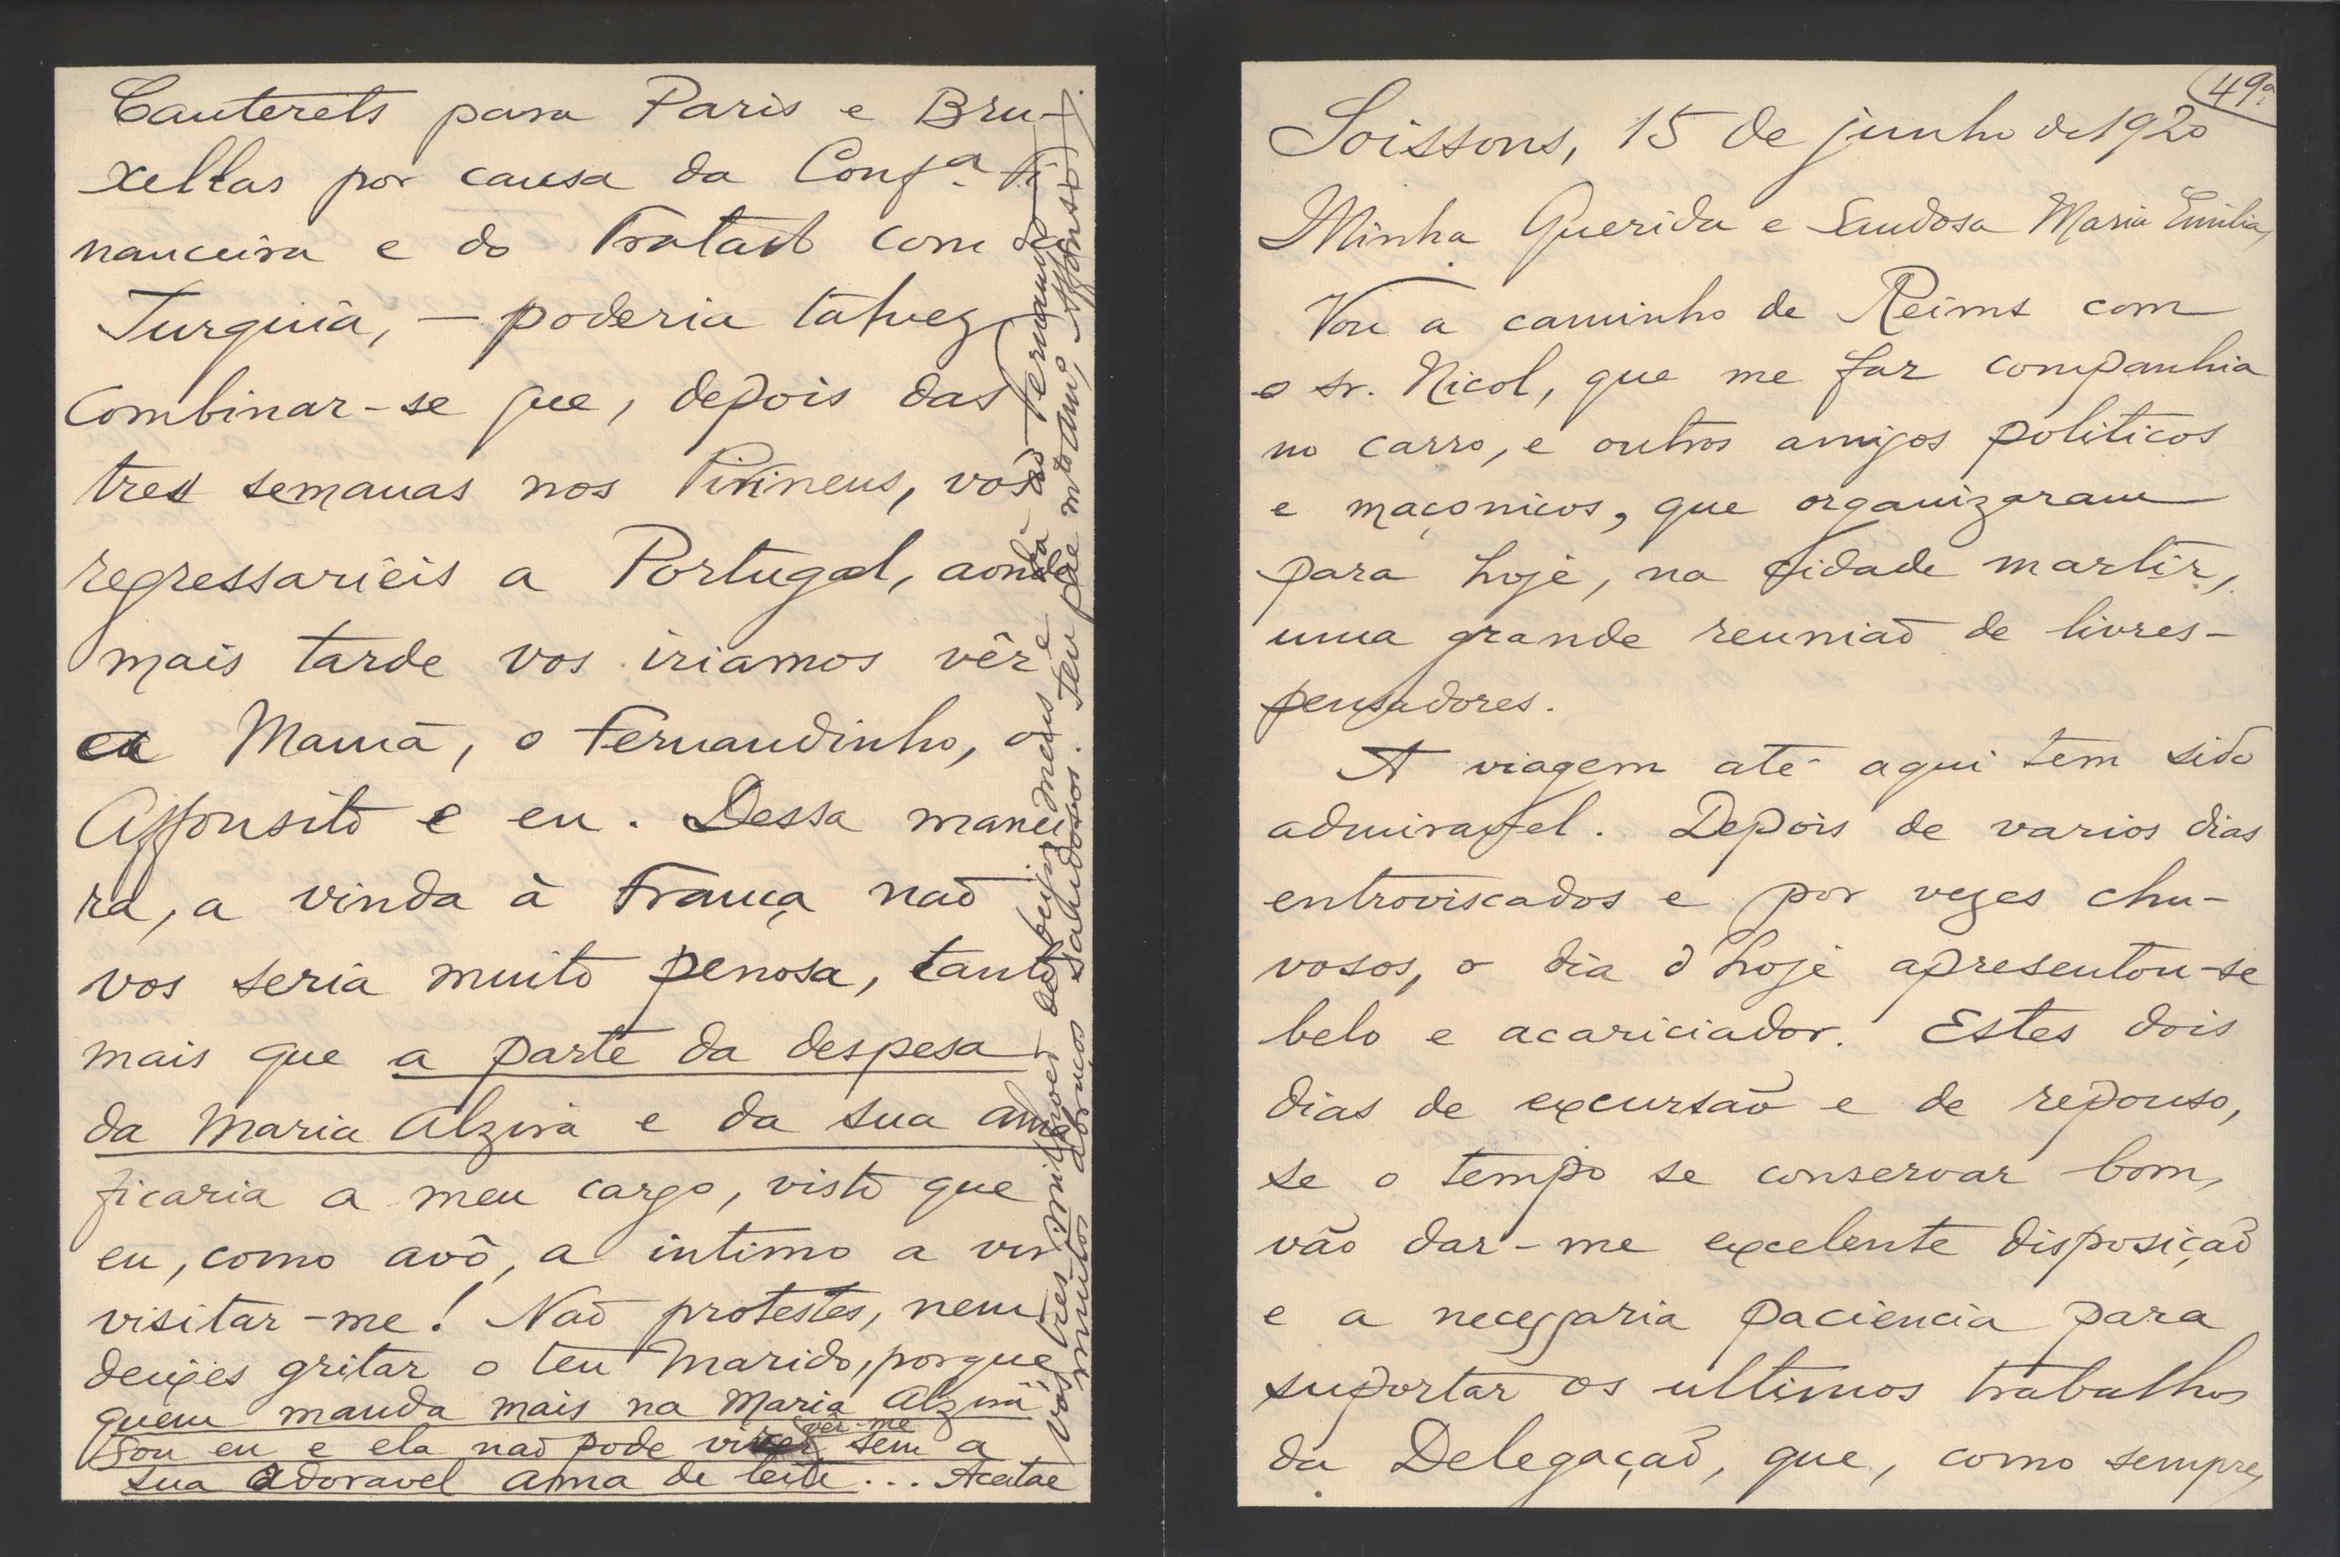 49ª
Soissons, 15 de junho de 1920
Minha Querida e Saudosa Maria Emilia,
Vou a caminho de Reims com
o sr. Nicol, que me faz companhia
no carro, e outros amigos politicos
e maçonicos, que organizaram
para hoje, na cidade martir,
uma grande reunião de livres-
pensadores.
A viagem até aqui tem sido
admiravel. Depois de varios dias
entroviscados e por vezes chu-
vosos, o dia d'hoje apresentou-se
belo e acariciador. Estes dois
dias de excursão e de repouso,
se o tempo se conservar bom,
vão dar-me excelente disposição
e a necessaria paciencia para
suportar os ultimos trabalhos
da Delegação, que, como sempre,
Cauterets para Paris e Bru-
xellas por causa da Confª. Fi-
nanceira e do Tratado com a
Turquia, — poderia talvez
combinar-se que, depois das
tres semanas nos Pirineus, vós
regressarieis a Portugal, aonde
mais tarde vos iriamos vêr
a Mamã, o Fernandinho, o
Affonsito e eu. Dessa manei-
ra, a vinda à França não
vos seria muito penosa, tanto
mais que a parte da despesa
da Maria Alzira e da sua ama
ficaria a meu cargo, visto que
eu, como avô, a intimo a vir
visitar-me! Não protestes, nem
deixes gritar o teu Marido, porque
quem manda mais na Maria Alzira
sou eu e ela não pode vir vêr-me sem a
sua adoravel ama de leite... Aceitae
vós tres mil beijos meus e da Mamã Fernando
muitos abraços saudosos. Teu pae mto amº, Affonso.